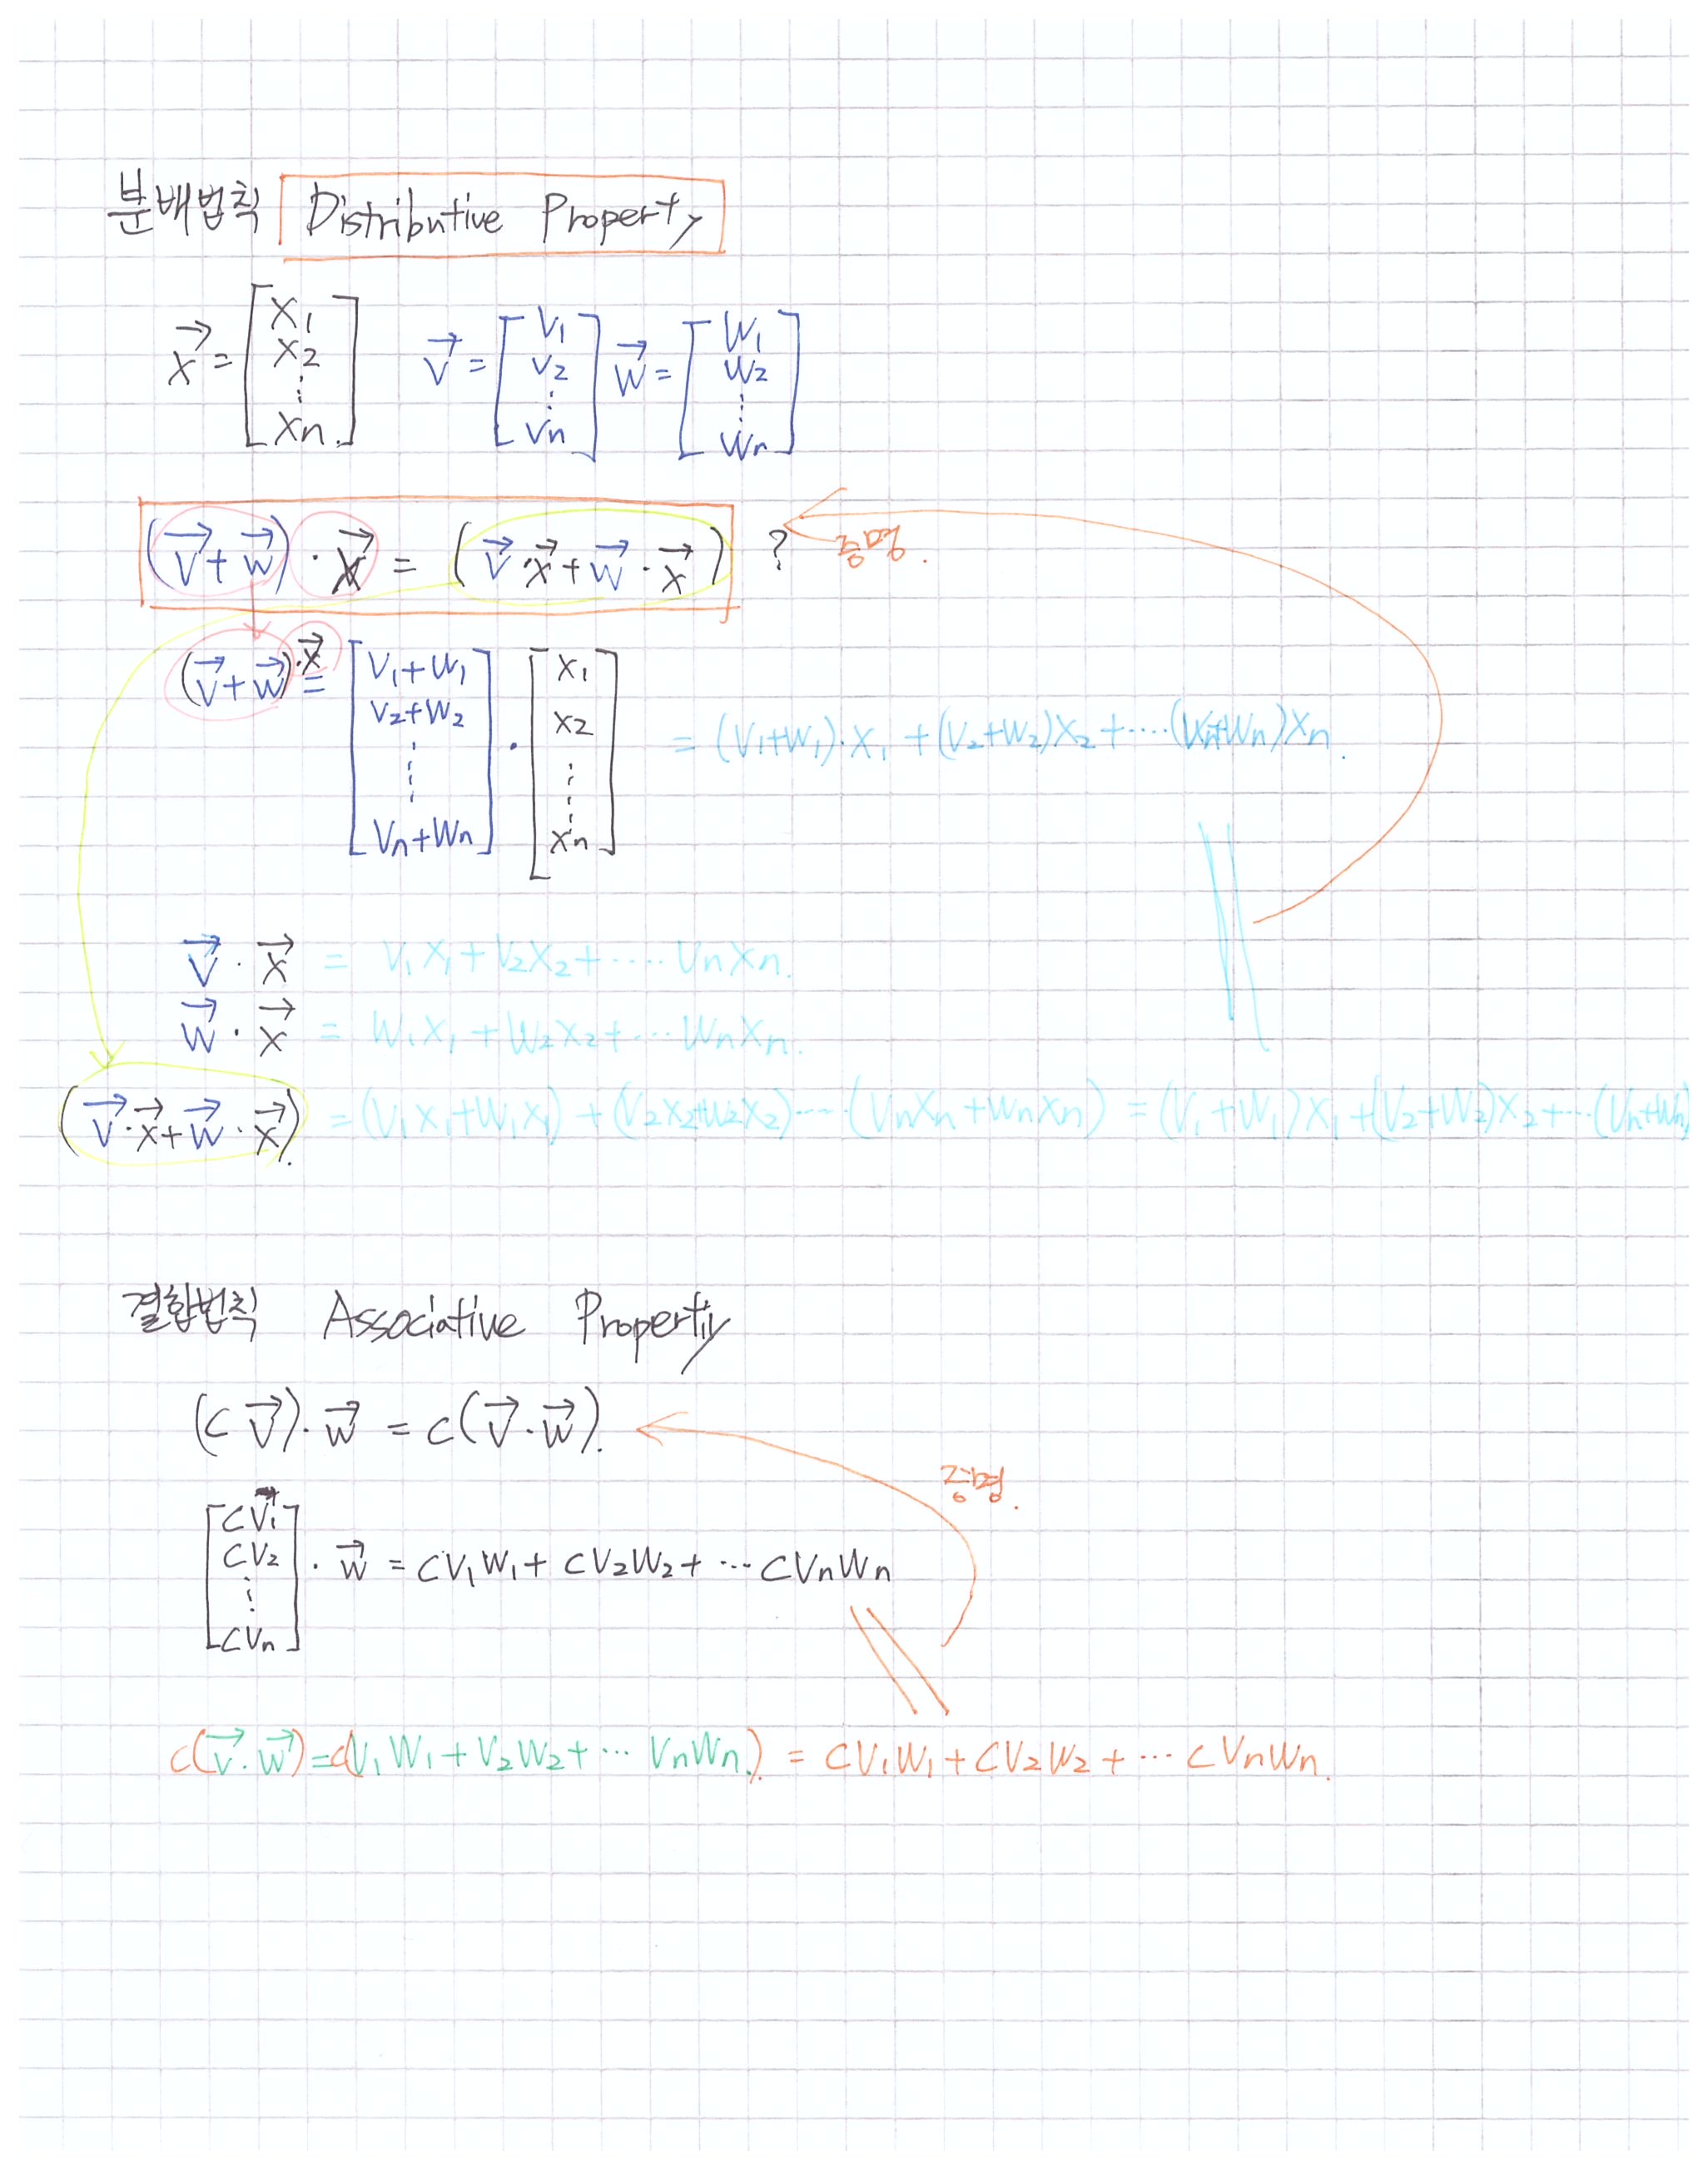 분배법칙 Distributive Property
x⃗ = [x₁ x₂ ⋮ xn.] v⃗ = [v₁ v₂ ⋮ vn] w⃗ = [w₁ w₂ ⋮ wn]
(v⃗ + w⃗) · x⃗ = (v⃗ · x⃗ + w⃗ · x⃗) ? 증명.
(v⃗ + w⃗) · x⃗ = [v₁+w₁ v₂+w₂ ⋮ vn+wn] · [x₁ x₂ ⋮ xn] = (v₁+w₁)·x₁ + (v₂+w₂)x₂ + ····(vn+wn)xn.
v⃗ · x⃗ = v₁x₁ + v₂x₂ + ····· vnxn.
w⃗ · x⃗ = w₁x₁ + w₂x₂ + ··· wnxn.
(v⃗ · x⃗ + w⃗ · x⃗). = (v₁x₁+w₁x₁) + (v₂x₂+w₂x₂)····(vnxn+wnxn) = (v₁+w₁)x₁ + (v₂+w₂)x₂ + ···(vn+wn)
결합법칙 Associative Property
(cv⃗) · w⃗ = c(v⃗ · w⃗).
증명.
[cv₁ cv₂ ⋮ cvn] · w⃗ = cv₁w₁ + cv₂w₂ + ··· cvnwn
c(v⃗ · w⃗) = c(v₁w₁ + v₂w₂ + ··· vnwn.) = cv₁w₁ + cv₂w₂ + ··· cvnwn.